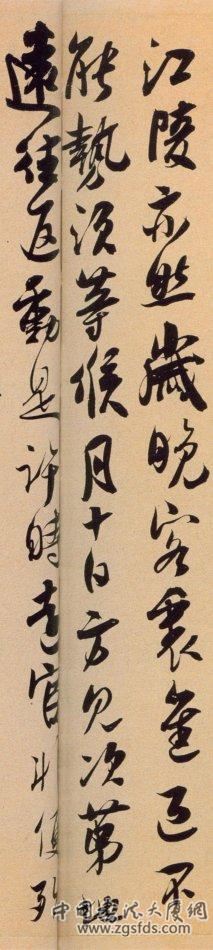 江陵亦然歲晚客裏進退不
能勢須等候月十日方見次第
遠往返動是許時 官 便
中國書法大廈網
www.zgsfds.com